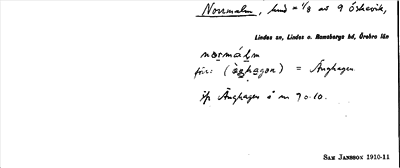 Norrmalm, hmd = 1/8 av 9 Öskevik,
Lindes sn, Lindes o. Ramsbergs bd, Örebro län
nosmáḷm
för: (ȧŋhagɐn) = Änghagen
jfr Änghagen i nr 9 o. 10.
SAM JANSSON 1910-11